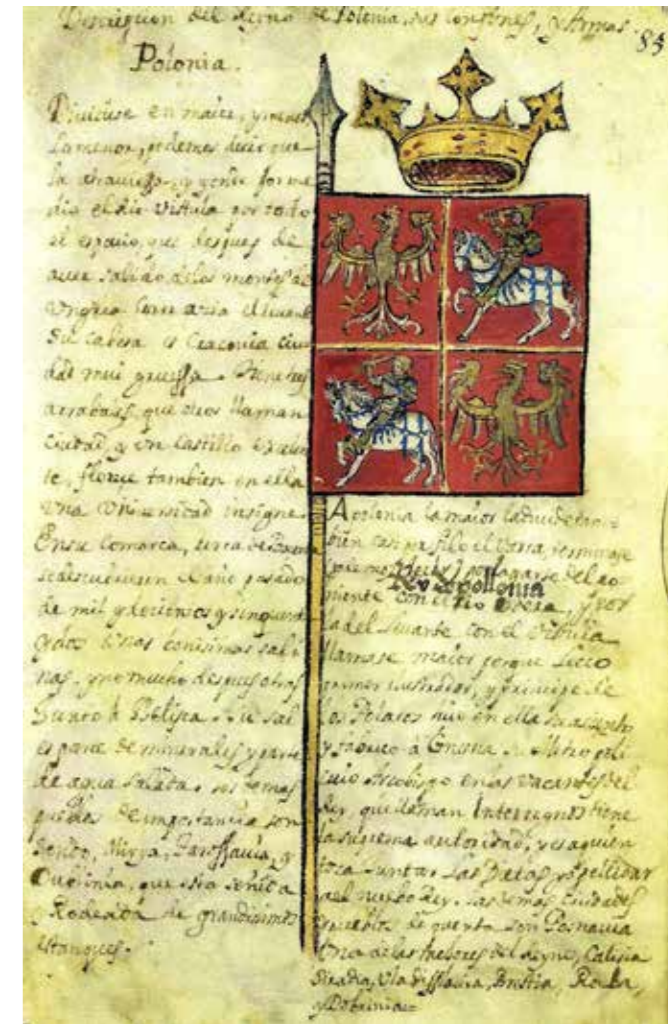 Descripcion del Reyno de Polonia, sus confines, y Armas.
83
Polonia.
Diuidese en maior, y menor
La menor, podemos decir que
la atrauiessa, y por
dio el Rio Vistula por todo
el espacio, que despues de
auer salido de los montes de
Vngria corre azia el
Su cabeza es Cracouia ciu
dad mui gruessa. tiene tres
arrabales, que ellos llaman
Ciudad, y un Castillo excelen
te, florece tambien en ella
una Vniuersidad insigne.
En su comarca, cerca de
se descubrieron el año pasado
de mil y docientos y cinquenta
y dos unas bonissimas sali
nas, y no mucho despues otras
Junto à Velisca. su sal
es parte de minerales y parte
de agua salada. sus demas
pueblos de importancia son
y
que esta ceñida
y Rodeada de grandisimos
estanques.
A Polonia la maior la diuide tan
bien casi por filo el Varta,
Rey de pollonia
niente con el rio Odera, y por
la del Leuante con el Vistula
llamase maior porque Lecco
primer ilustrador, y principe de
los Polacos tuuo en ella su asiento
y à Gnesna su Metropoli
cuio Arcobispo en las vacantes del
Rey, que llaman Interregnos tiene
la suprema autoridad, y es a quien
toca Juntar las Dietas, y apellidar
al nuebo Rey. las demas Ciudades
de quenta son Posnauia
Una de las mejores del Reyno, Calisia
Siradia, Vladisslauia, Brestia,
y Dobrinia